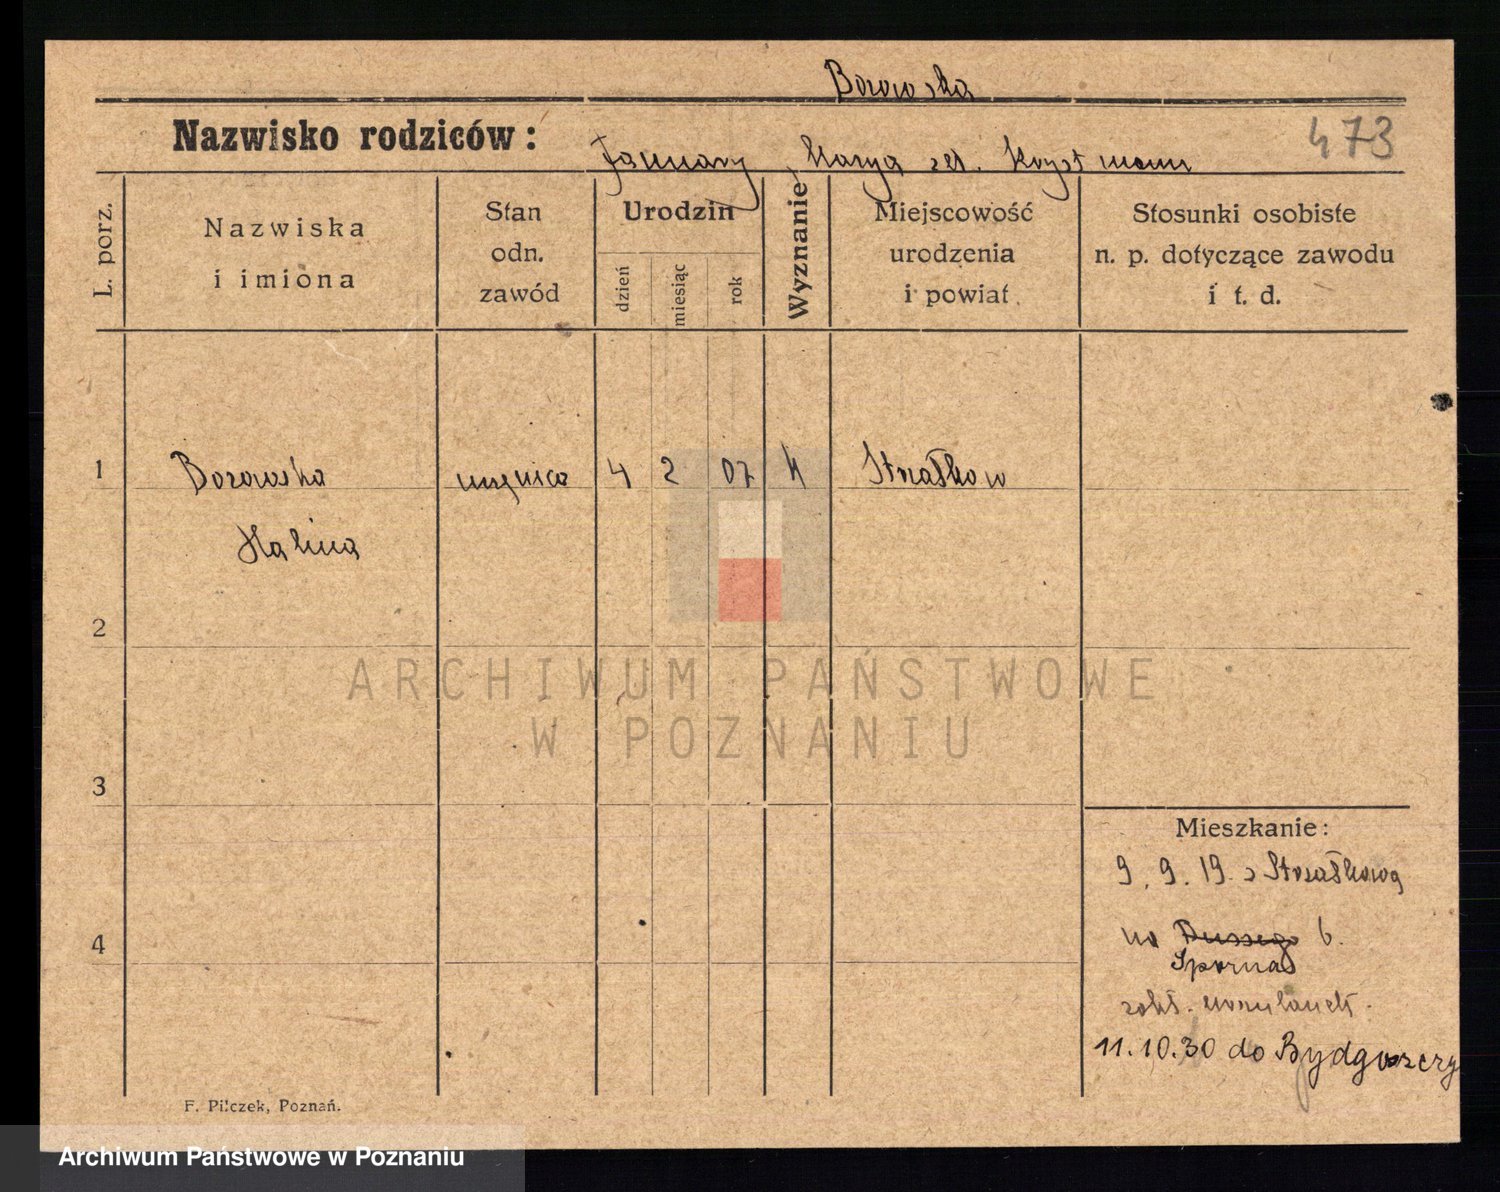 Borowska
Nazwisko rodziców: January Marya zd. Krystmann
473
L. porz.
Nazwiska
i imiona
Stan
odn.
zawód
Urodzin
dzień
miesiąc
rok
Wyznanie
Miejscowość
urodzenia
i powiat
Stosunki osobiste
n. p. dotyczące zawodu
i t. d.
1 Borowska 4 2 07 k Strzałkow
Halina
2
3
4
Mieszkanie:
9. 9. 19. z Strzałkowa
na 6.
Sporna
11.10.30 do Bydgoszczy
F. Pilczek, Poznań.
ARCHIWUM PAŃSTWOWE
W POZNANIU
Archiwum Państwowe w Poznaniu